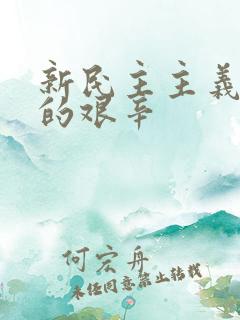 新民主主义
的艰辛
何宏舟
未经同意禁止转载